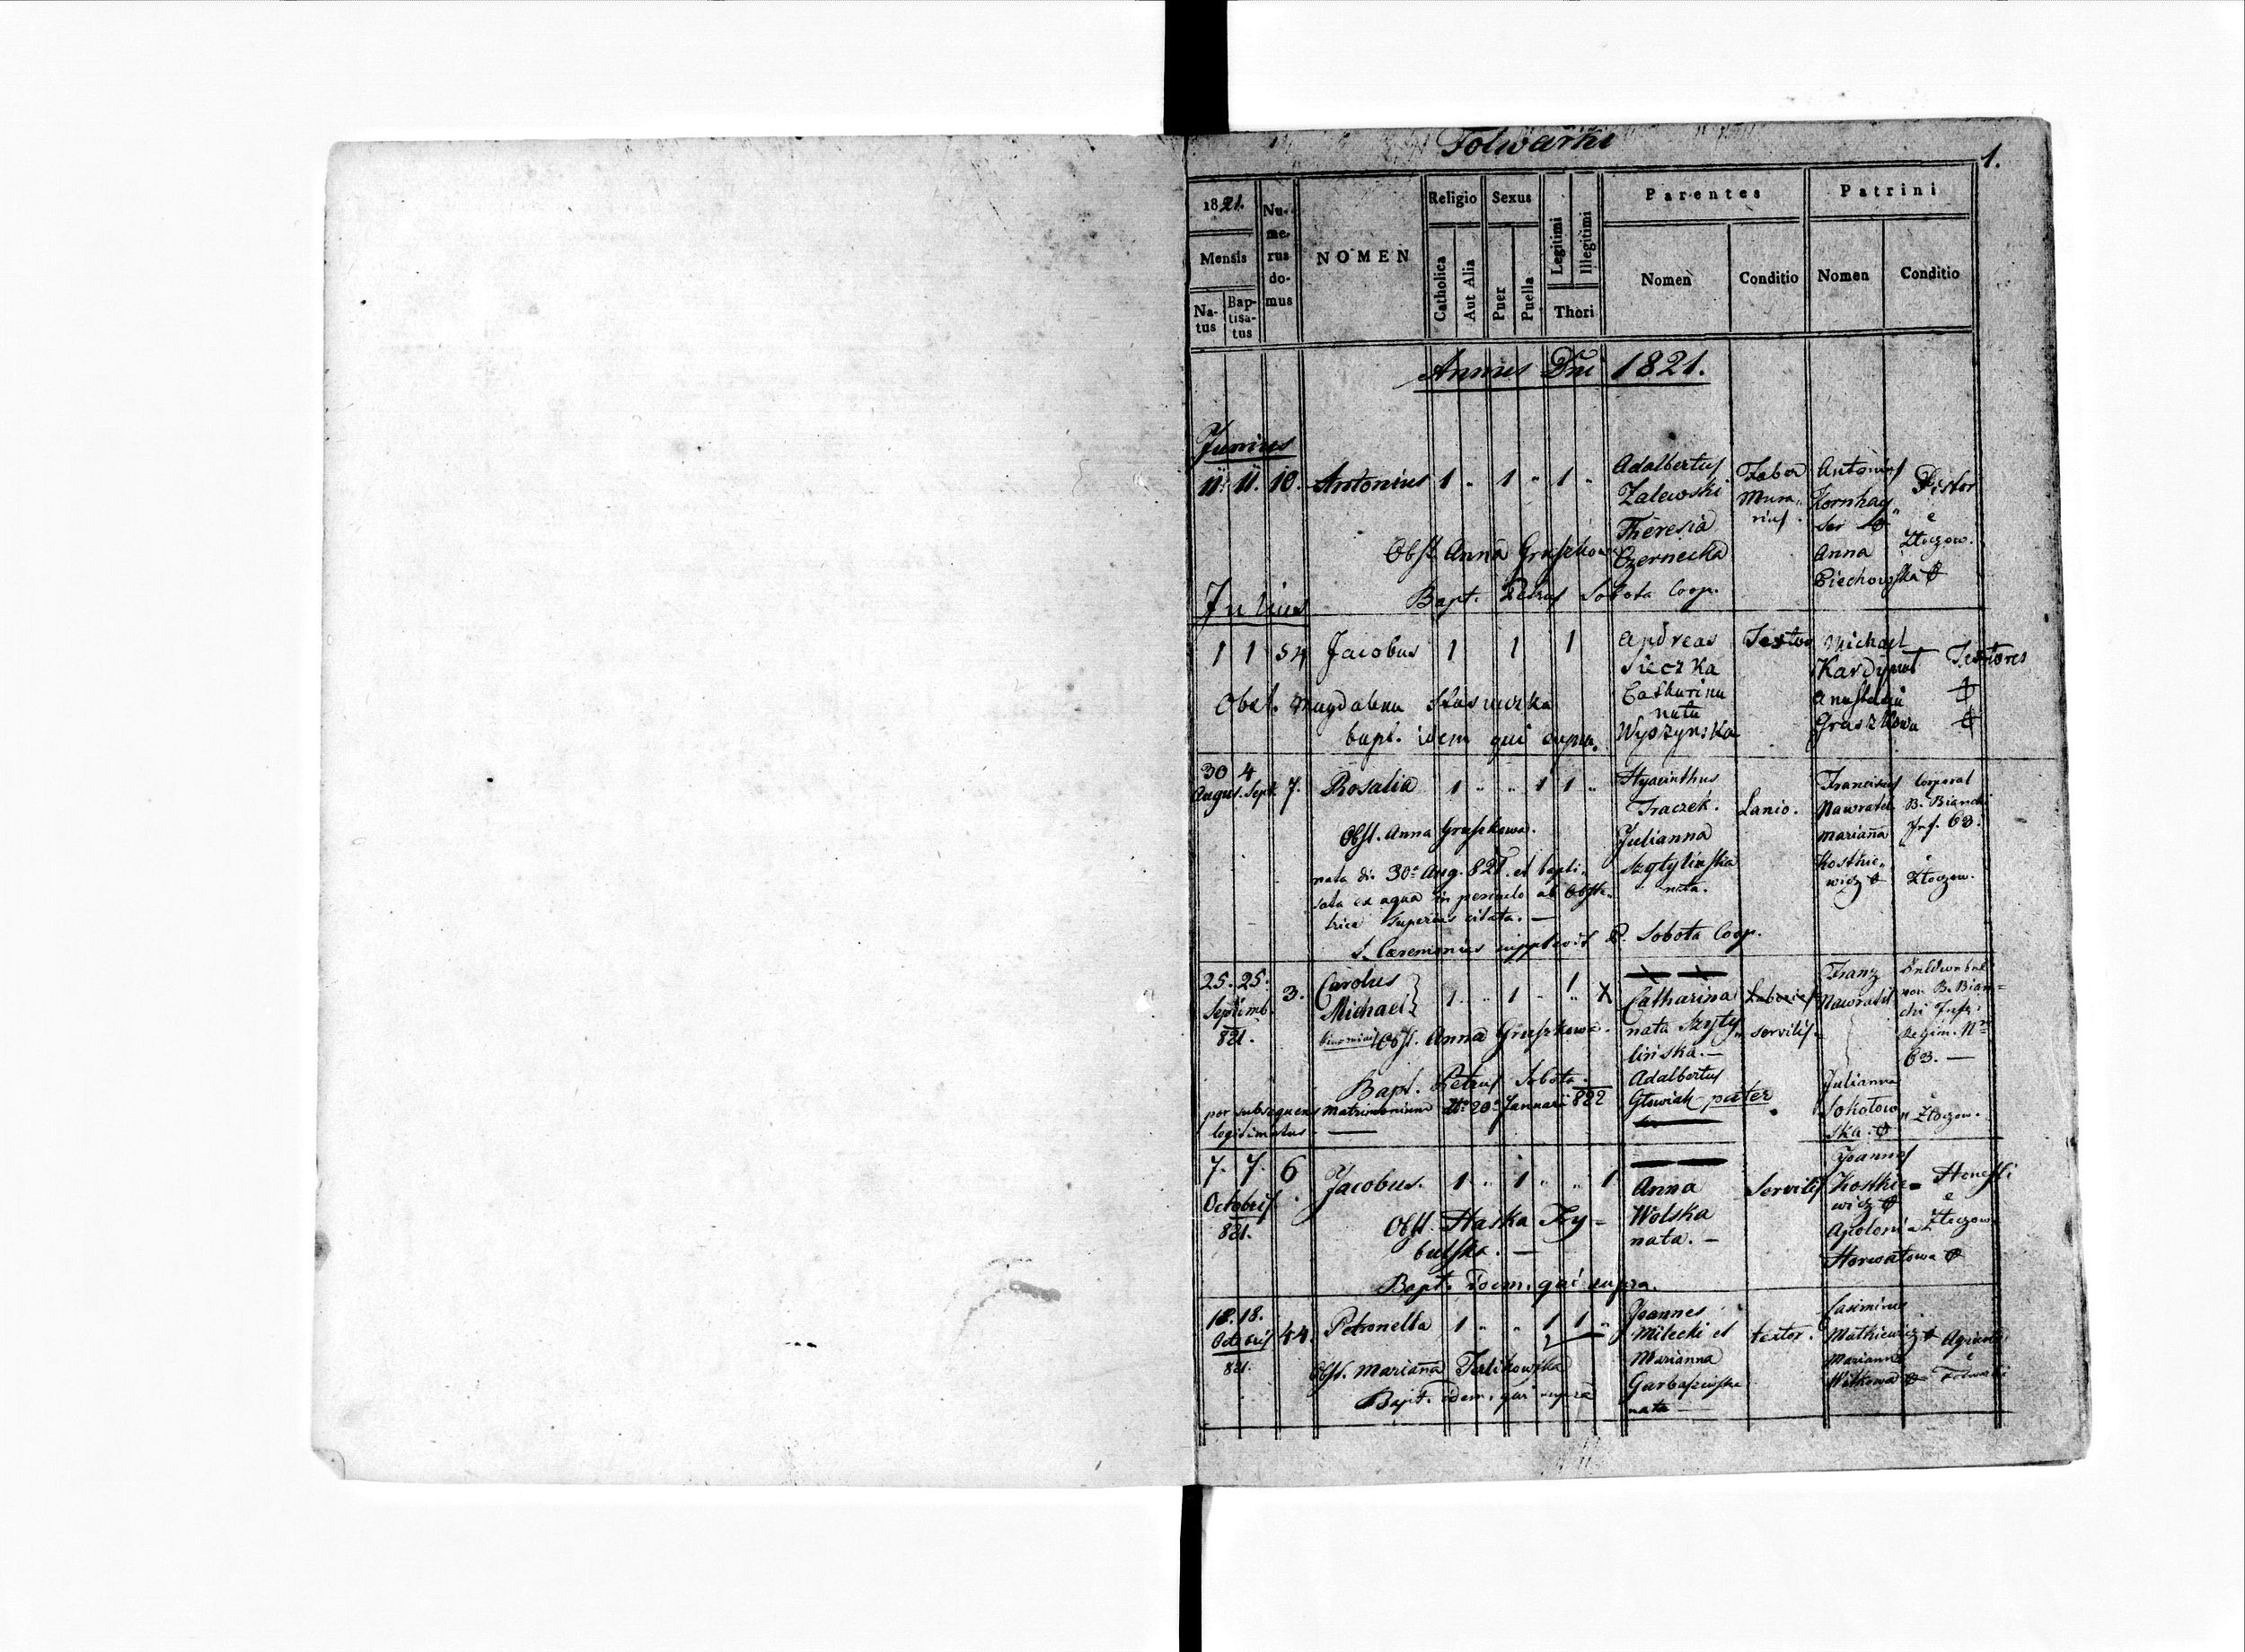 Folwarki
1.
1821.
Numerus domus
NOMEN
Religio
Sexus
Legitimi
Illegitimi
Parentes
Patrini
Mensis
Catholica
Aut Alia
Puer
Puella
Thori
Nomen
Conditio
Nomen
Conditio
Natus
Baptisatus
Annus Dni 1821.
Junius
11. 11. 10. Antonius 1 " 1 " 1 "
Adalbertus
Zalewski
Theresia
Czernecka
Faber
Mura
rius.
Antonius
Kornhay
ser
Anna
Ciechowska
Pistor
e
Złoczow.
Obst. Anna Gruszkowa
Bapt. Petrus Sobota Coop.
Julius
1 1 54 Jacobus 1 1 1
Andreas
Sieczka
Catharina
nata
Wyszynska
Textor
Michael
Kardynał
Anastasia
Gruszkowa
Textores
Obst. Magdalena
bapt. idem qui supra.
30 4
August. Sept. 7. Rosalia 1 " " 1 1 "
Hyacinthus
Traczek.
Julianna
Szytylinska
nata.
Lanio.
Franciscus
Nawratil
Marianna
Kostkie
wicz
Corporal
B. Bianchi
Inf. 63.
e
Złoczow.
Obst. Anna Gruszkowa.
nata die 30a Aug. 821. et bapti
sata ex aqua in periculo ab Obste
trice superius citata. —
S. Caeremonias supplevit P. Sobota Coop.
25. 25.
Septemb. 3.
821.
Carolus
Michael
1 " 1 " " X
Catharina
nata Szyty
linska. —
Adalbertus
Głowiak pater
servilis.
Franz
Nawratil
Julianna
Sokołow
ska.
Feldwebel
von B. Bian=
chi Inft.
Regim. Nro
63. —
e Złoczow.
Obst. Anna Gruszkowa.
Bapt. Petrus Sobota.
per subsequens matrimonium die 20 Januari 822
legitimatus —
7. 7. 6
Octobris
821.
Jacobus. 1 " 1 " " 1
Anna
Wolska
nata. —
servilis
Joannes
Kostkie=
wicz
Apolonia
Horwatowa
Honesti
e
Złoczow
Obst. Haska
Bapt. idem. qui supra.
18. 18.
Octobris 44.
821.
Petronella 1 " " 1 1 "
Joannes
Milecki et
Marianna
nata —
textor.
Casimirus
Matkiewicz
Marianna
Witkowa
e
Folwarki
Obst. Marianna
Bapt. idem. qui supra